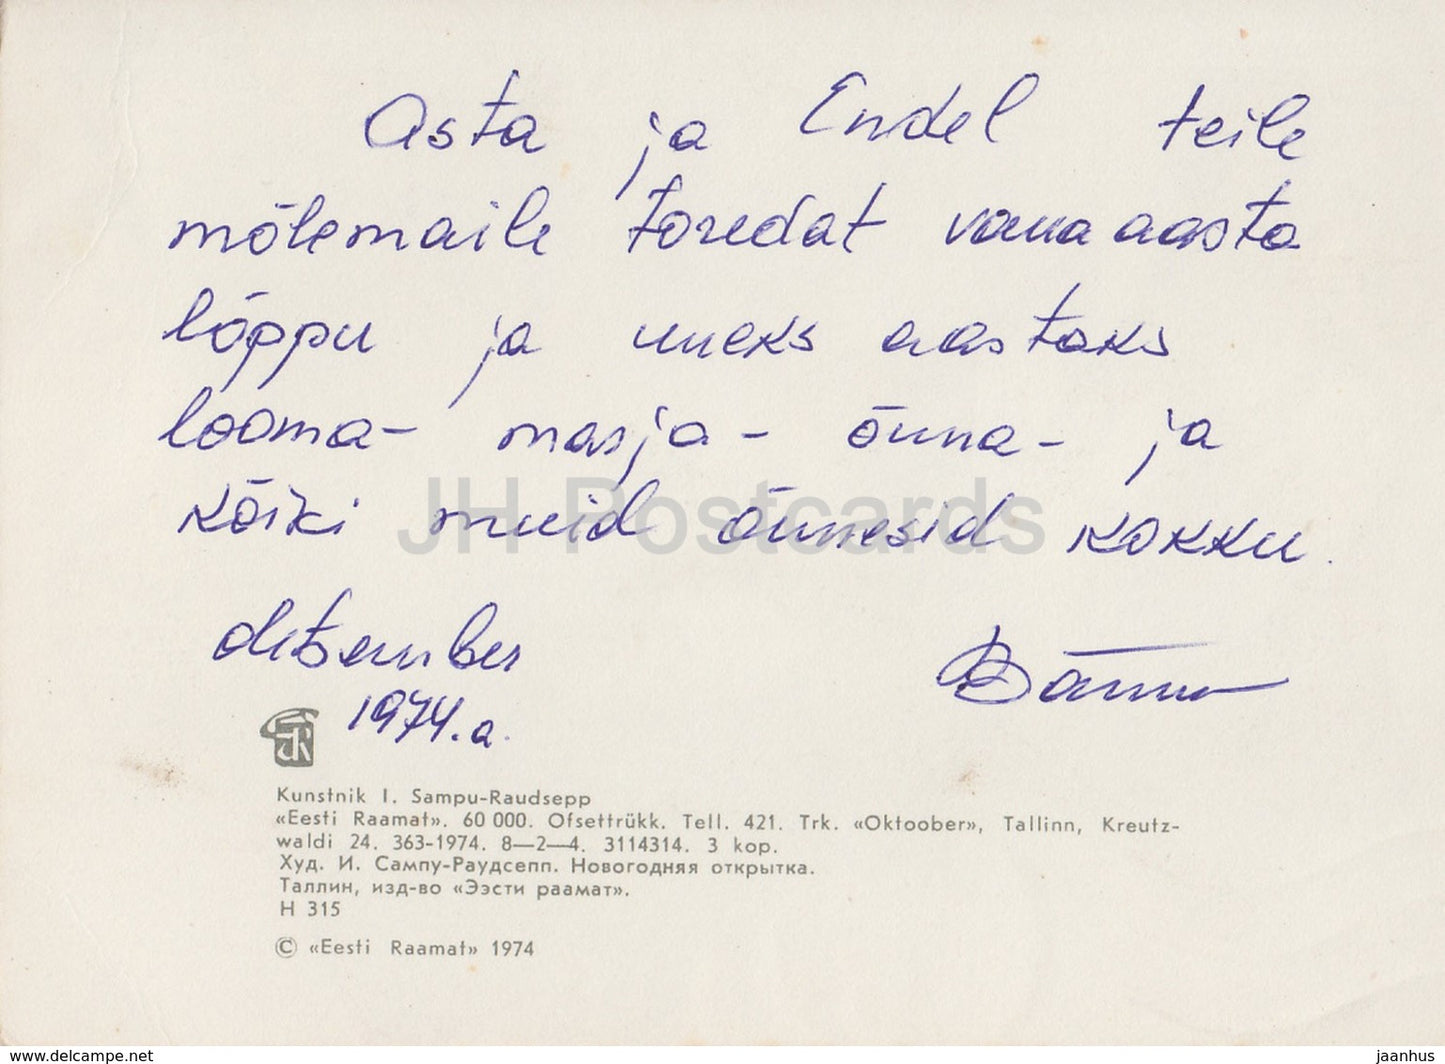 Asta ja Endel teile
mõlemaile toredat vana aasta
lõppu ja uueks aastaks
looma- marja- õuna- ja
kõiki muid õnnesid kokku.
detsember
1974.a.
JH Postcards
Kunstnik I. Sampu-Raudsepp
«Eesti Raamat». 60 000. Ofsettrükk. Tell. 421. Trk. «Oktoober», Tallinn, Kreutz-
waldi 24. 363-1974. 8—2—4. 3114314. 3 kop.
Худ. И. Сампу-Раудсепп. Новогодняя открытка.
Таллин, изд-во «Ээсти раамат».
Н 315
© «Eesti Raamat» 1974
www.delcampe.net
jaanhus